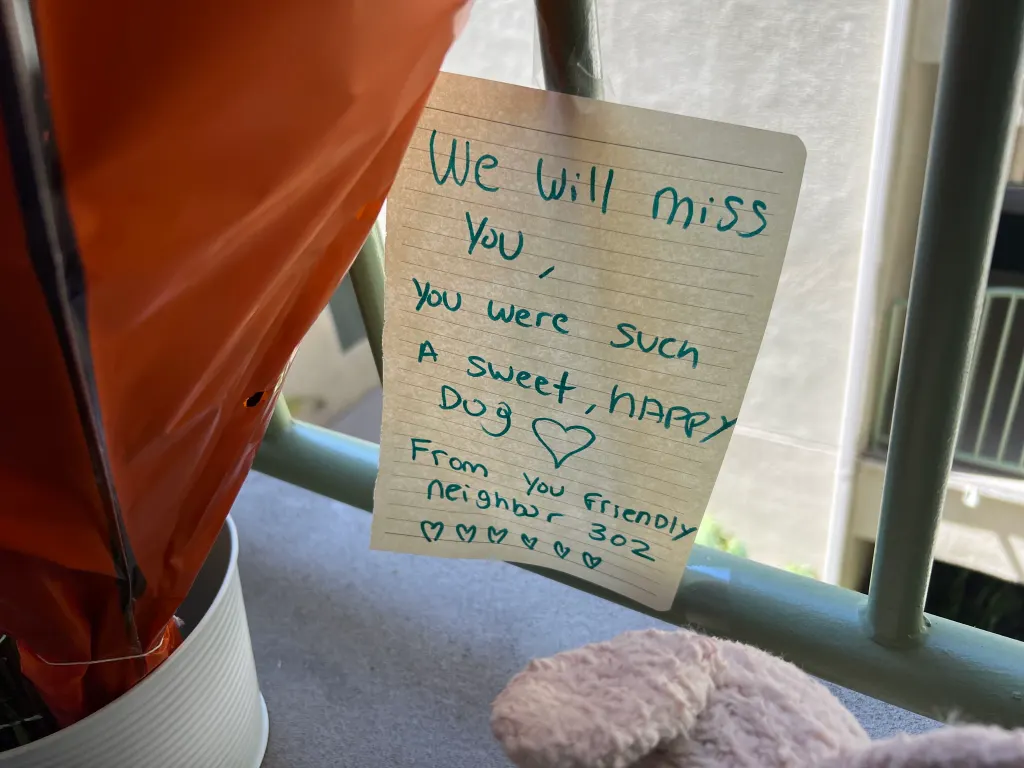 We will miss
you,
you were such
A sweet, hAPPy
Dog ♡
From you Friendly
neighbor 302
♡♡♡♡♡♡